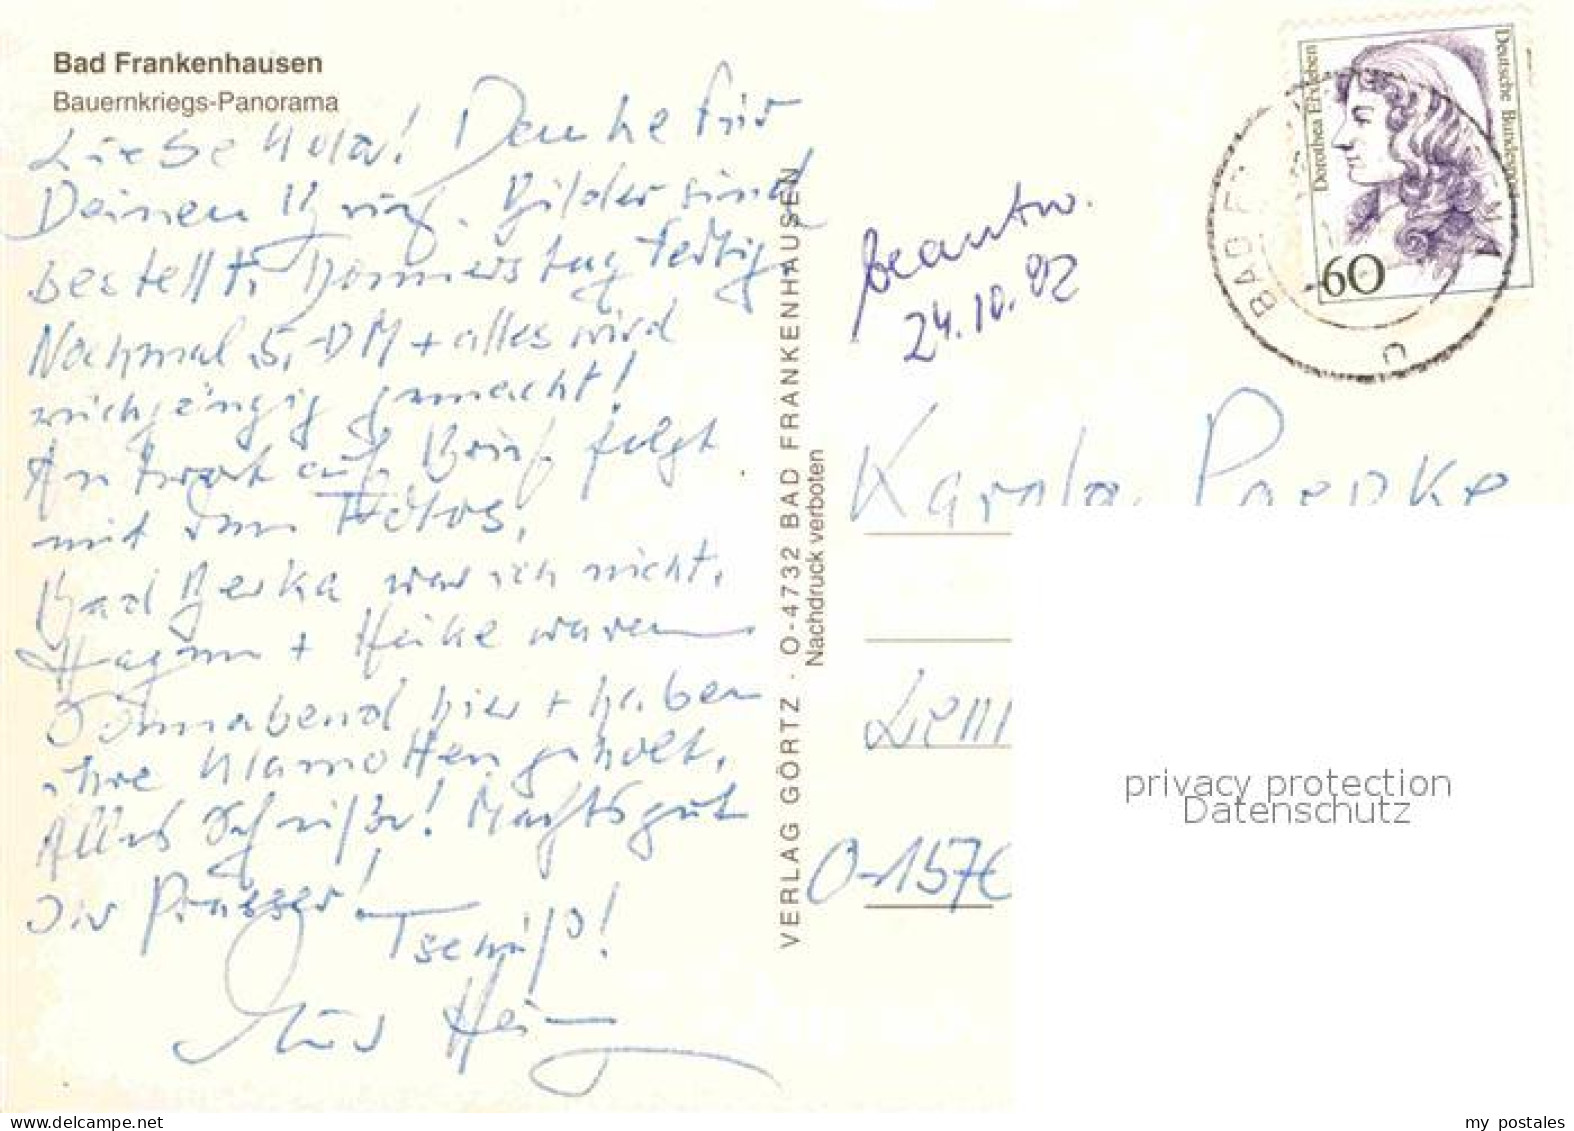 Bad Frankenhausen
Bauernkriegs-Panorama
Liebe ! Danke für
Deinen Brief. Bilder sind
bestellt, Donnerstag fertig.
Nochmal 5,-DM + alles wird
rückgängig gemacht!
Antwort auf Brief folgt
mit den Fotos.
Bad Berka war ich nicht.
Hagen + Heike waren
Sonnabend hier + haben
ihre Klamotten geholt.
Alles Scheiße! Machts gut
Ihr Prasser!
Tschüß!
VERLAG GÖRTZ · O-4732 BAD FRANKENHAUSEN
Nachdruck verboten
beantw.
24.10.92
Dorothea Erxleben
Deutsche Bundespost
60
BAD F
Karola
O-157
privacy protection
Datenschutz
delcampe.net
my postales